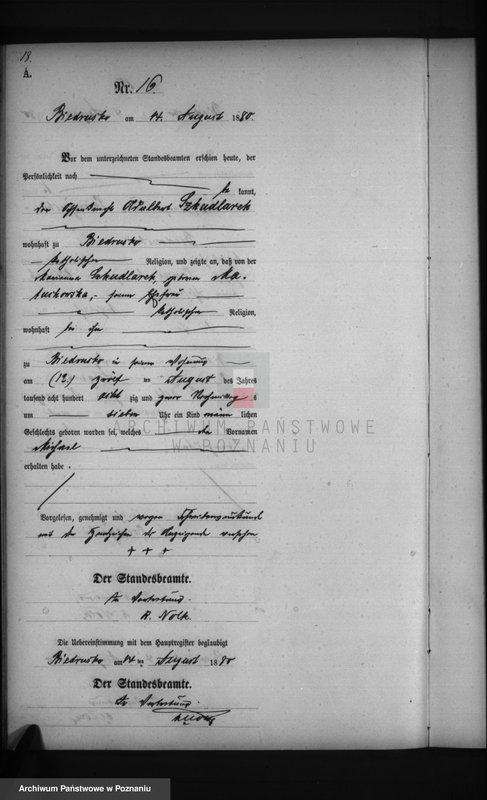 18.
A.
Nr. 16.
Biedrusko am 14. August 1880.
Vor dem unterzeichneten Standesbeamten erschien heute, der
Persönlichkeit nach
be kannt,
der Ochsenknecht Adalbert Szkudlarek
wohnhaft zu Biedrusko
katholischer Religion, und zeigte an, daß von der
Marianna Szkudlarek, geborenen
seiner Ehefrau
katholischer Religion,
wohnhaft bei ihm
zu Biedrusko in seiner Wohnung
am (12.) zwölf ten August des Jahres
tausend acht hundert acht zig und zwar Nachmittag s
um sieben Uhr ein Kind männ lichen
Geschlechts geboren worden sei, welches den Vornamen
Michael
erhalten habe.
Vorgelesen, genehmigt und wegen Schreibensunkunde
mit den Handzeichen des Anzeigenden versehen
+ + +
Der Standesbeamte.
In Vertretung.
R. Nolte
Die Uebereinstimmung mit dem Hauptregister beglaubigt
Biedrusko am 14 ten August 1880
Der Standesbeamte.
In Vertretung.
ARCHIWUM PAŃSTWOWE
W POZNANIU
Archiwum Państwowe w Poznaniu